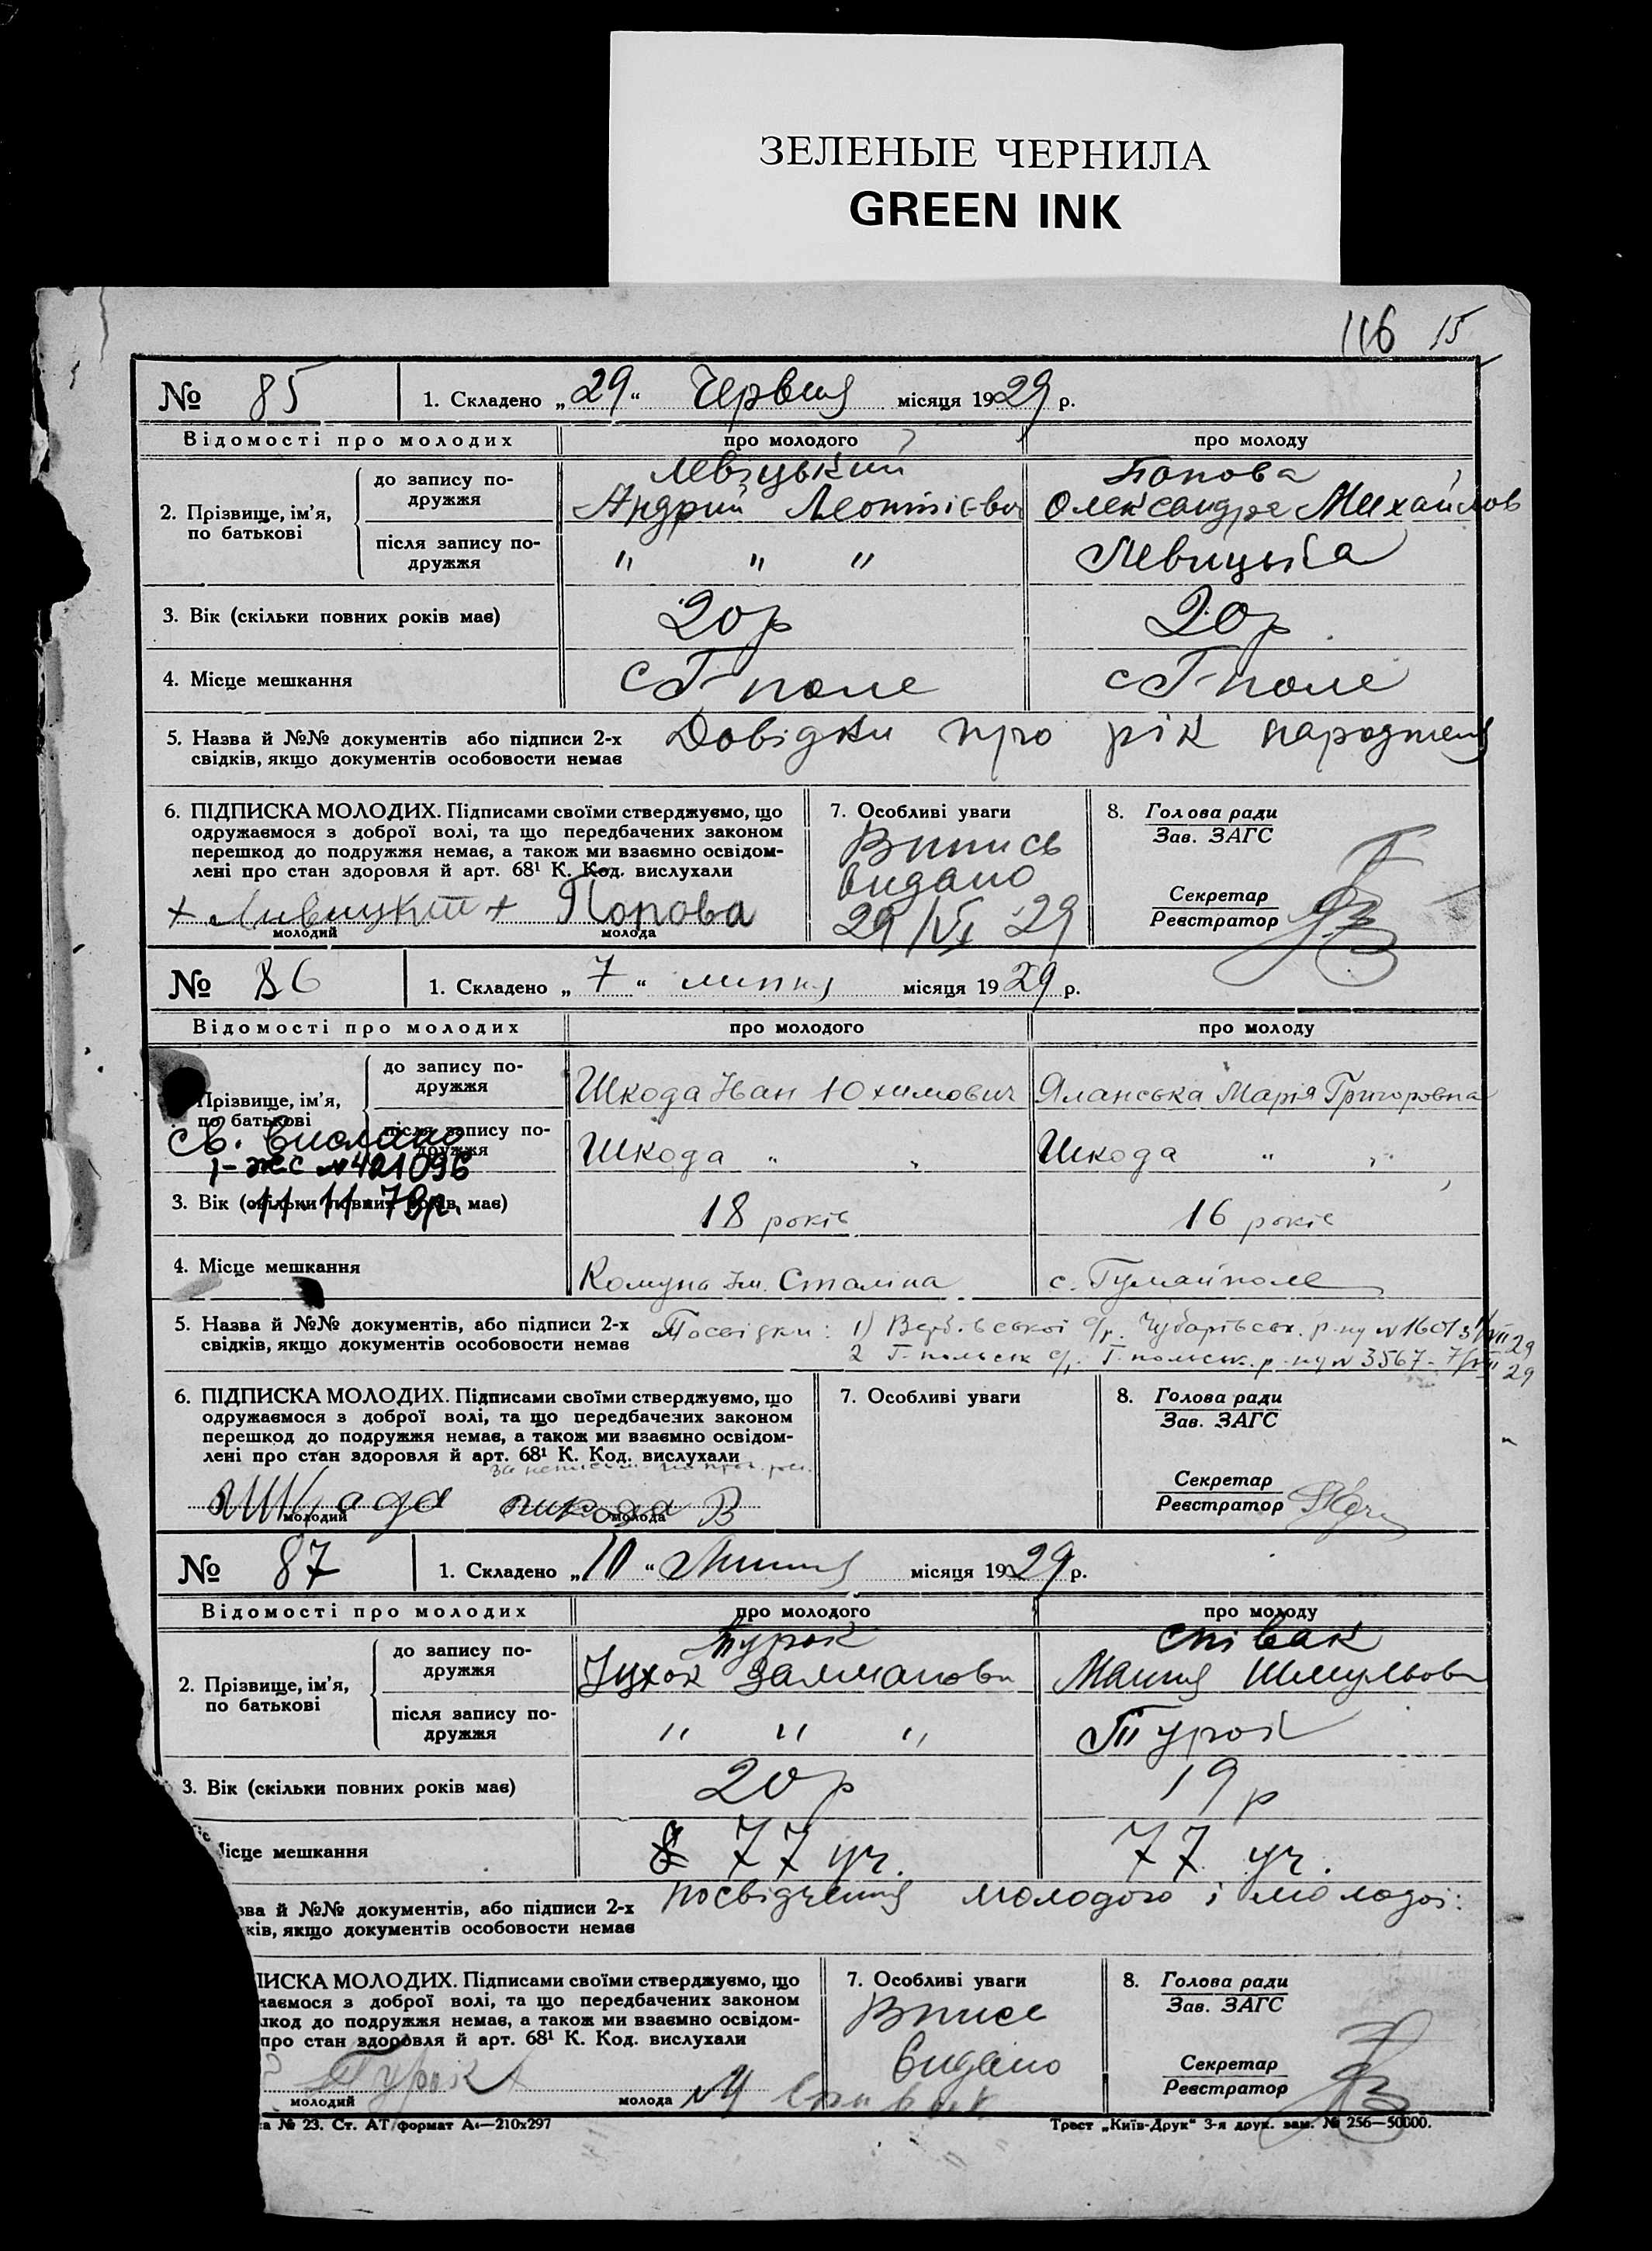 ЗЕЛЕНЫЕ ЧЕРНИЛА
GREEN INK
116 15
№ 85 1. Складено „29“ Червня місяця 1929 р.
Відомості про молодих про молодого про молоду
2. Прізвище, ім’я, по батькові
до запису подружжя
Левіцький Андрий Леонтієвич
Попова Олександра Михайлов
після запису подружжя
" " "
Левицька
3. Вік (скільки повних років має) 20 р 20 р
4. Місце мешкання с Г-поле с Г-поле
5. Назва й №№ документів або підписи 2-х Довідки про рік народження
свідків, якщо документів особовости немає
6. ПІДПИСКА МОЛОДИХ. Підписами своїми стверджуємо, що
одружаємося з доброї волі, та що передбачених законом
перешкод до подружжя немає, а також ми взаємно освідом-
лені про стан здоровля й арт. 68¹ К. Код. вислухали
+ Ливицкий + Попова
молодий молода
7. Особливі уваги
Випись
видано
29/VI 29
8. Голова ради
Зав. ЗАГС
Секретар
Реєстратор
№ 86 1. Складено „7“ липня місяця 1929 р.
Відомості про молодих про молодого про молоду
Прізвище, ім’я, по батькові
до запису подружжя
Шкода Іван Юхимович
Яланська Марія Григоровна
після запису подружжя
Шкода " "
Шкода " "
Св. выслано
І-жс №421096
11-11-79р.
3. Вік (скільки повних років має) 18 років 16 років
4. Місце мешкання Комуна Ім. Сталіна с. Гуляйполе
5. Назва й №№ документів, або підписи 2-х Посвідки: 1) Вербівської с/р. Чубарівськ. р-ну №1601 3/VII 29
свідків, якщо документів особовости немає 2 Г-польськ с/р. Г-польськ. р-ну №3567-7/VII 29
6. ПІДПИСКА МОЛОДИХ. Підписами своїми стверджуємо, що
одружаємося з доброї волі, та що передбачених законом
перешкод до подружжя немає, а також ми взаємно освідом-
лені про стан здоровля й арт. 68¹ К. Код. вислухали
Шкода
молодий молода
7. Особливі уваги
8. Голова ради
Зав. ЗАГС
Секретар
Реєстратор
№ 87 1. Складено „10“ Липня місяця 1929 р.
Відомості про молодих про молодого про молоду
2. Прізвище, ім’я, по батькові
до запису подружжя
Турок Іцхок Залманови
Співак Мання Шмульови
після запису подружжя
" " "
Турок
3. Вік (скільки повних років має) 20 р 19 р
ісце мешкання 77 уч. 77 уч.
зва й №№ документів, або підписи 2-х посвідчення молодого і молодої:
ків, якщо документів особовости немає
ПИСКА МОЛОДИХ. Підписами своїми стверджуємо, що
жаємося з доброї волі, та що передбачених законом
шкод до подружжя немає, а також ми взаємно освідом-
про стан здоровля й арт. 68¹ К. Код. вислухали
Турок
молодий молода
7. Особливі уваги
Видано
8. Голова ради
Зав. ЗАГС
Секретар
Реєстратор
а № 23. Ст. АТ формат А₄—210х297
Трест „Київ-Друк“ 3-я друк. зам. № 256—50000.